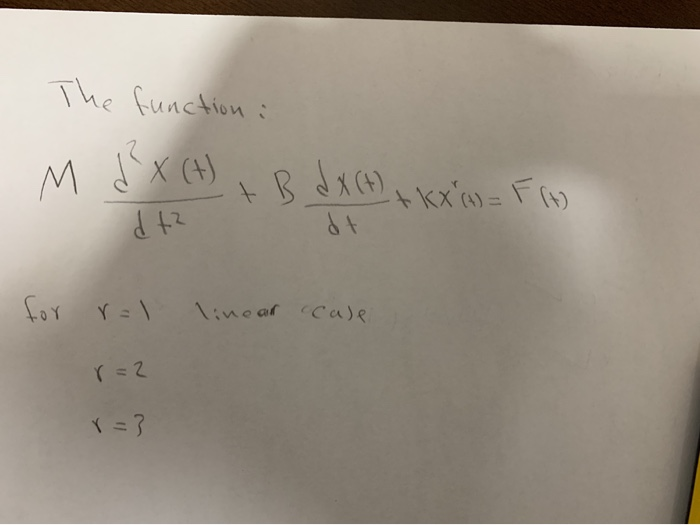 The function:
M d²x(t)/dt² + B dx(t)/dt + Kxʳ(t) = F(t)
for r=1 linear case
r=2
r=3